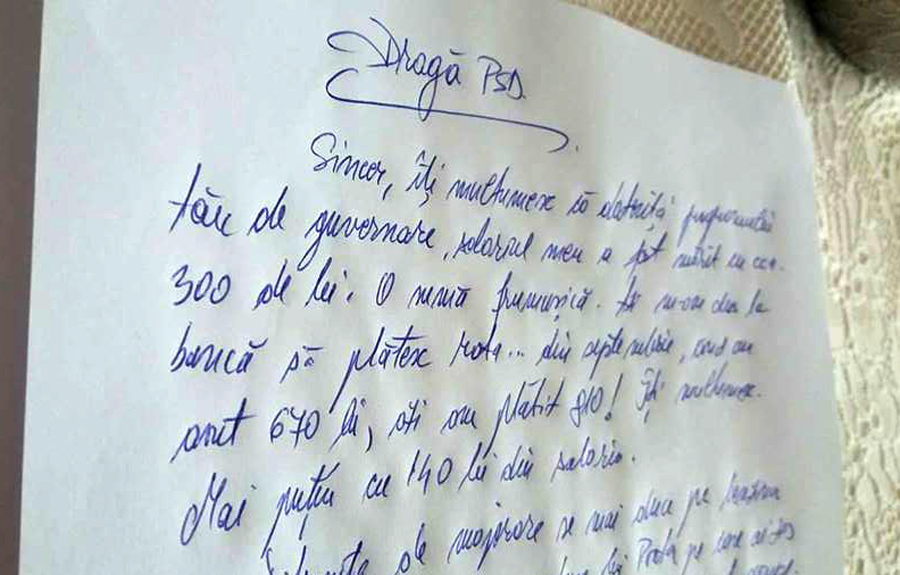 Dragă PSD.
Sincer, îți mulțumesc că datorită programului
tău de guvernare, salariul meu a fost mărit cu cca.
300 de lei. O sumă frumușică. Și m-am dus la
bancă să plătesc rata... din septembrie, când am
avut 670 lei, azi am plătit 810! Îți mulțumesc.
Mai puțin cu 140 lei din salariu.
de majorare se mai duce pe
pe care